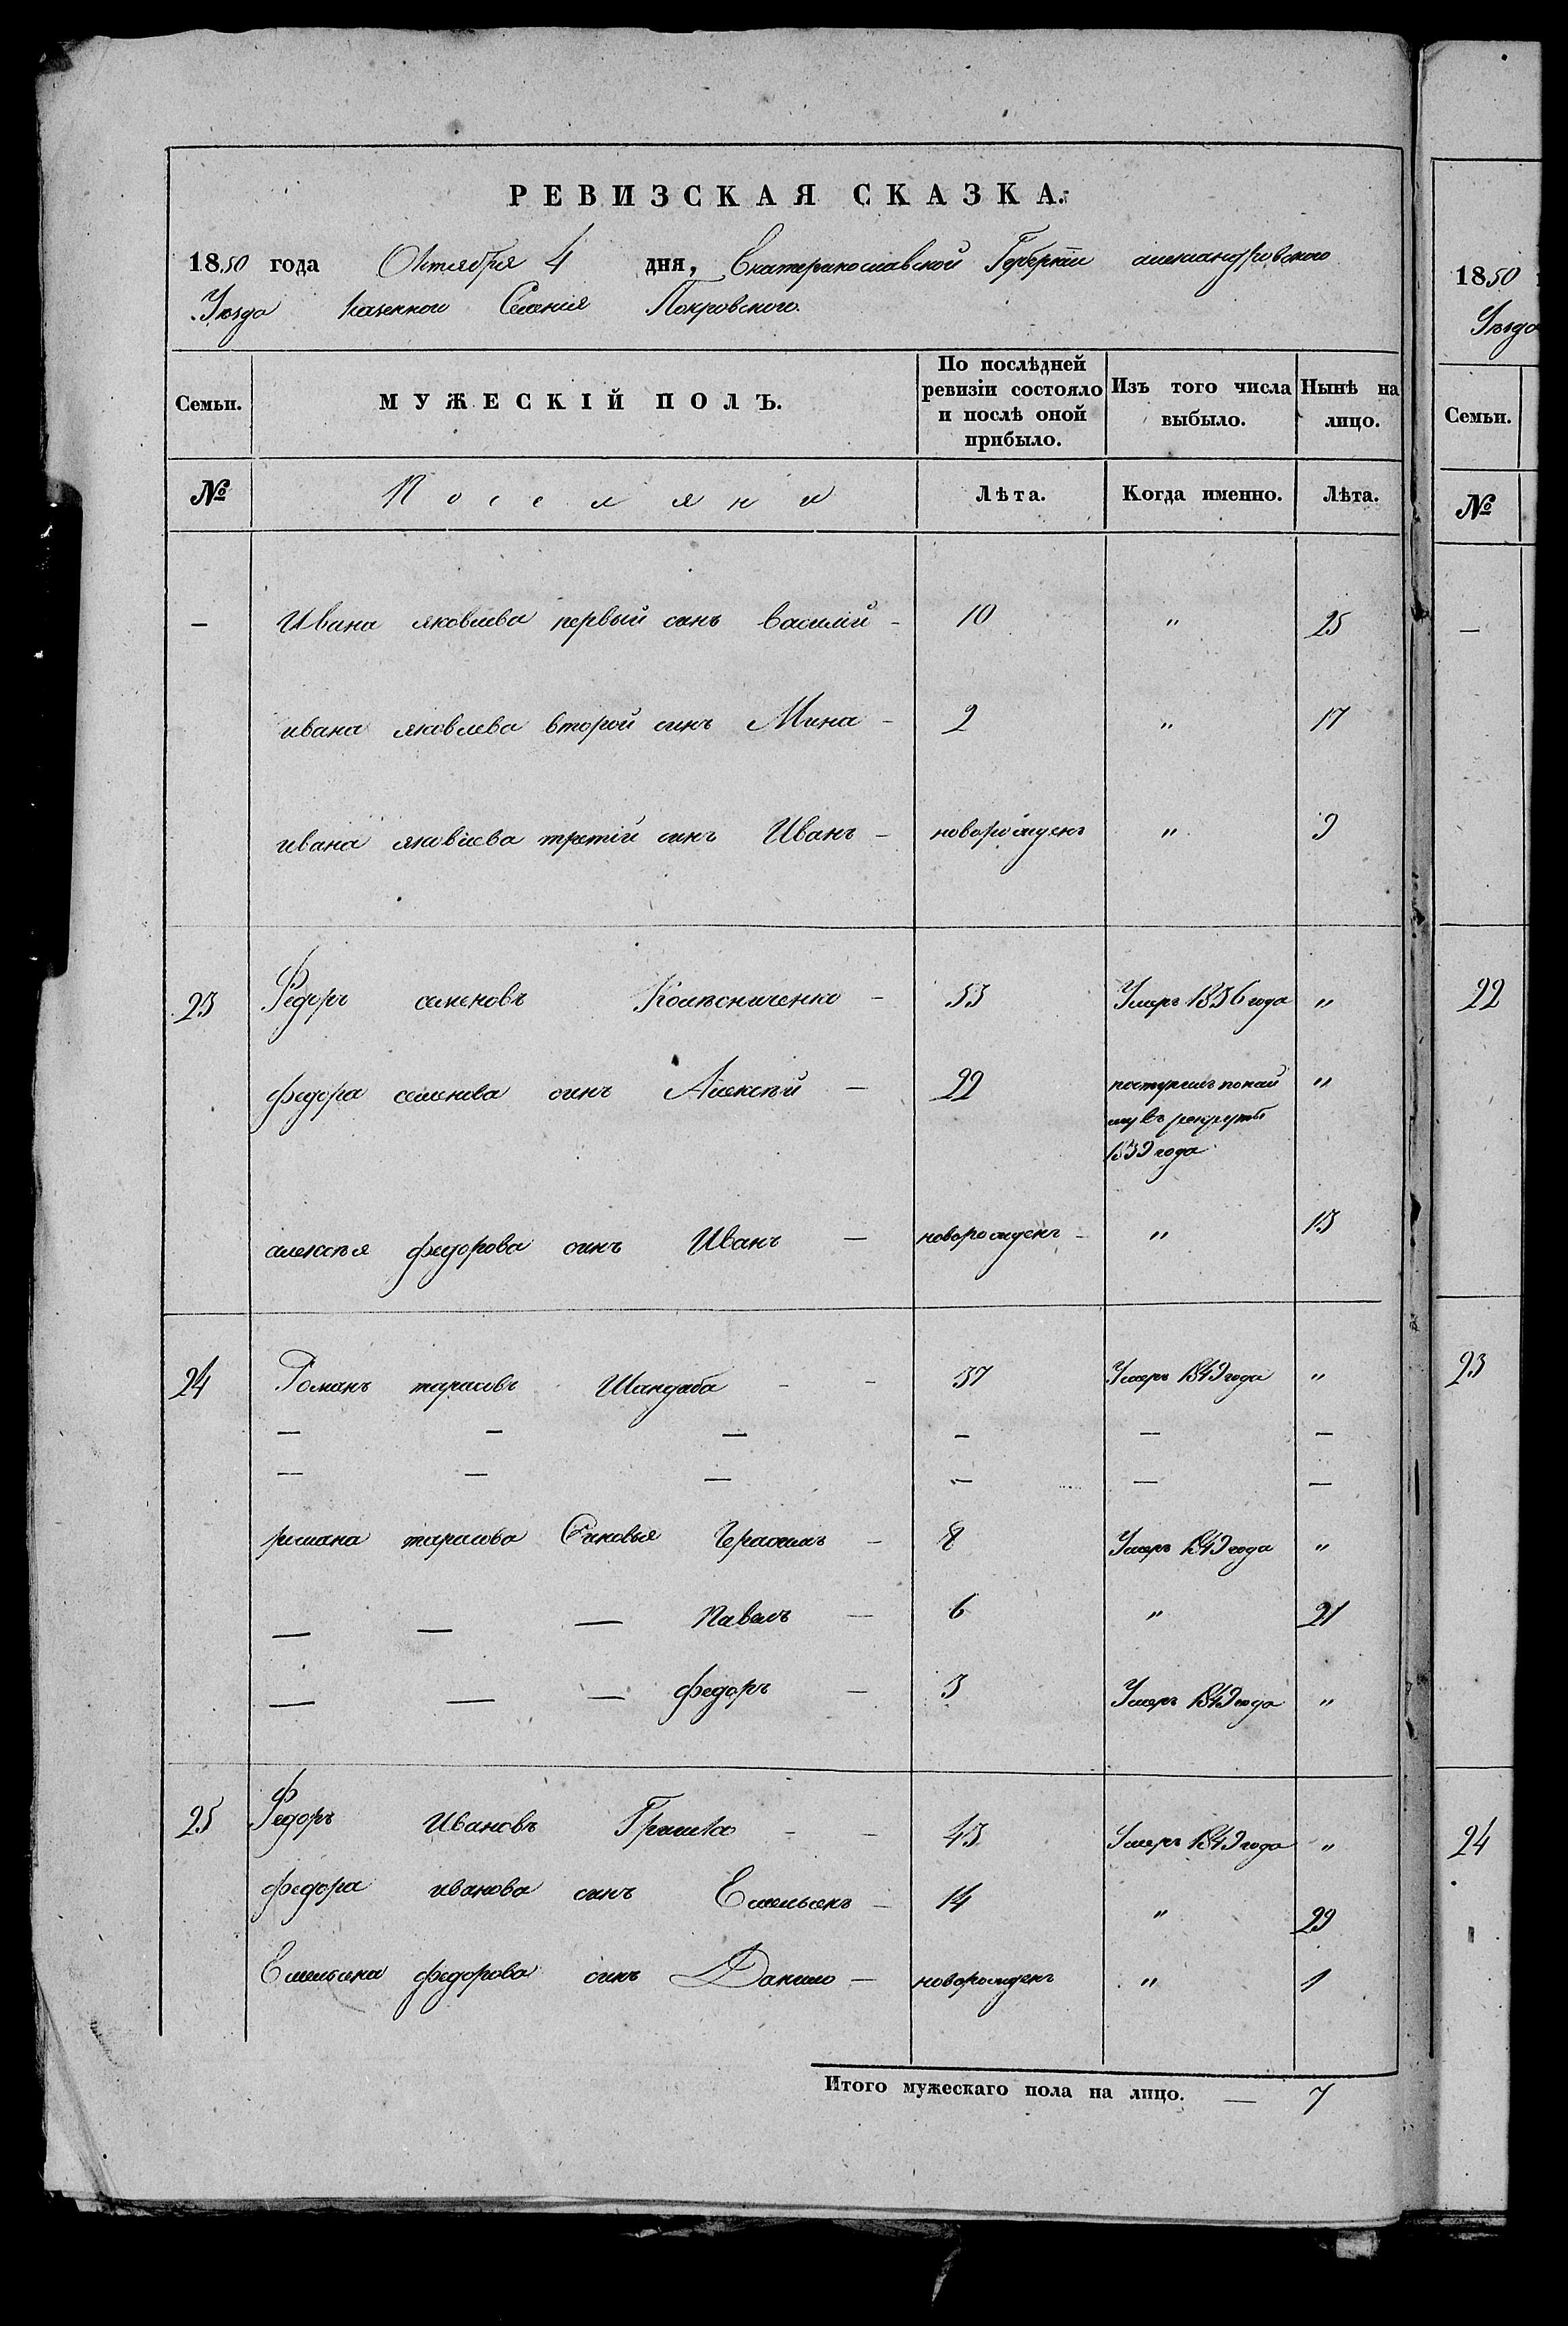 РЕВИЗСКАЯ СКАЗКА.
1850 года Октября 4 дня, Екатеринославской Губернии александровского
Уезда казенного Селения Покровского.
Семьи. МУЖЕСКІЙ ПОЛЪ. По послѣдней ревизіи состояло и послѣ оной прибыло. Изъ того числа выбыло. Нынѣ на лицо.
№ Поселяни Лѣта. Когда именно. Лѣта.
— Ивана яковлева первый синъ василий — 10 " 25
ивана яковлева второй синъ Мина — 2 " 17
ивана яковлева третій синъ Иванъ — новорожденъ " 9
23 Федоръ семеновъ — 53 Умеръ 1836 года "
федора семенова синъ Алексѣй — 22 поступилъ по най
му въ рекруты
1839 года "
алексѣя федорова синъ Иванъ — новорожденъ — " 13
24 Романъ тарасовъ Шандыба — — 37 Умеръ 1849 года "
— — — — — —
— — — — — —
романа тарасова Синовья Герасимъ — 8 Умеръ 1849 года "
— — — Павелъ — 6 " 21
— — — федоръ — 3 Умеръ 1849 года "
25 Федоръ Ивановъ Гришко — — 43 Умеръ 1849 года "
федора иванова синъ Емельянъ — 14 " 29
Емельяна федорова синъ Данило — новорожденъ " 1
Итого мужескаго пола на лицо. — 7
1850
Уезда
Семьи.
№
—
22
23
24